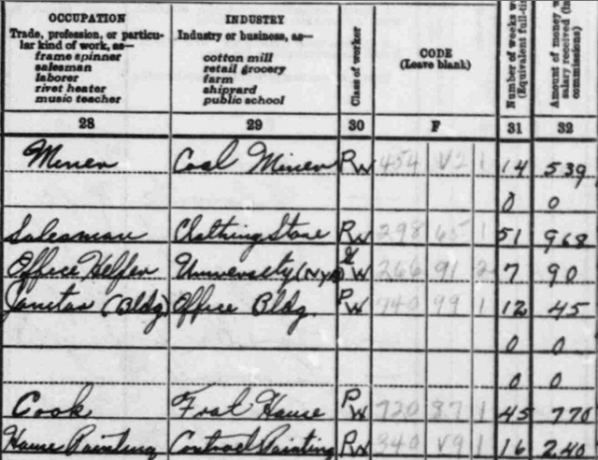 OCCUPATION
Trade, profession, or particu-
lar kind of work, as—
frame spinner
salesman
laborer
rivet heater
music teacher
INDUSTRY
Industry or business, as—
cotton mill
retail grocery
farm
shipyard
public school
Class of worker
CODE
(Leave blank)
Number of weeks w
(Equivalent full-ti
Amount of money w
salary received (In
commissions)
28 29 30 F 31 32
Miner Coal Miner PW 454 V2 1 14 539
0 0
Salesman Clothing Store PW 298 65 1 51 968
Office Helper University (NYA) GW 266 91 2 7 90
Janitor (Bldg) Office Bldg. PW 740 99 1 12 45
0 0
0 0
Cook Frat House PW 720 87 1 45 770
House Painting Contract Painting PW 340 V9 1 16 240